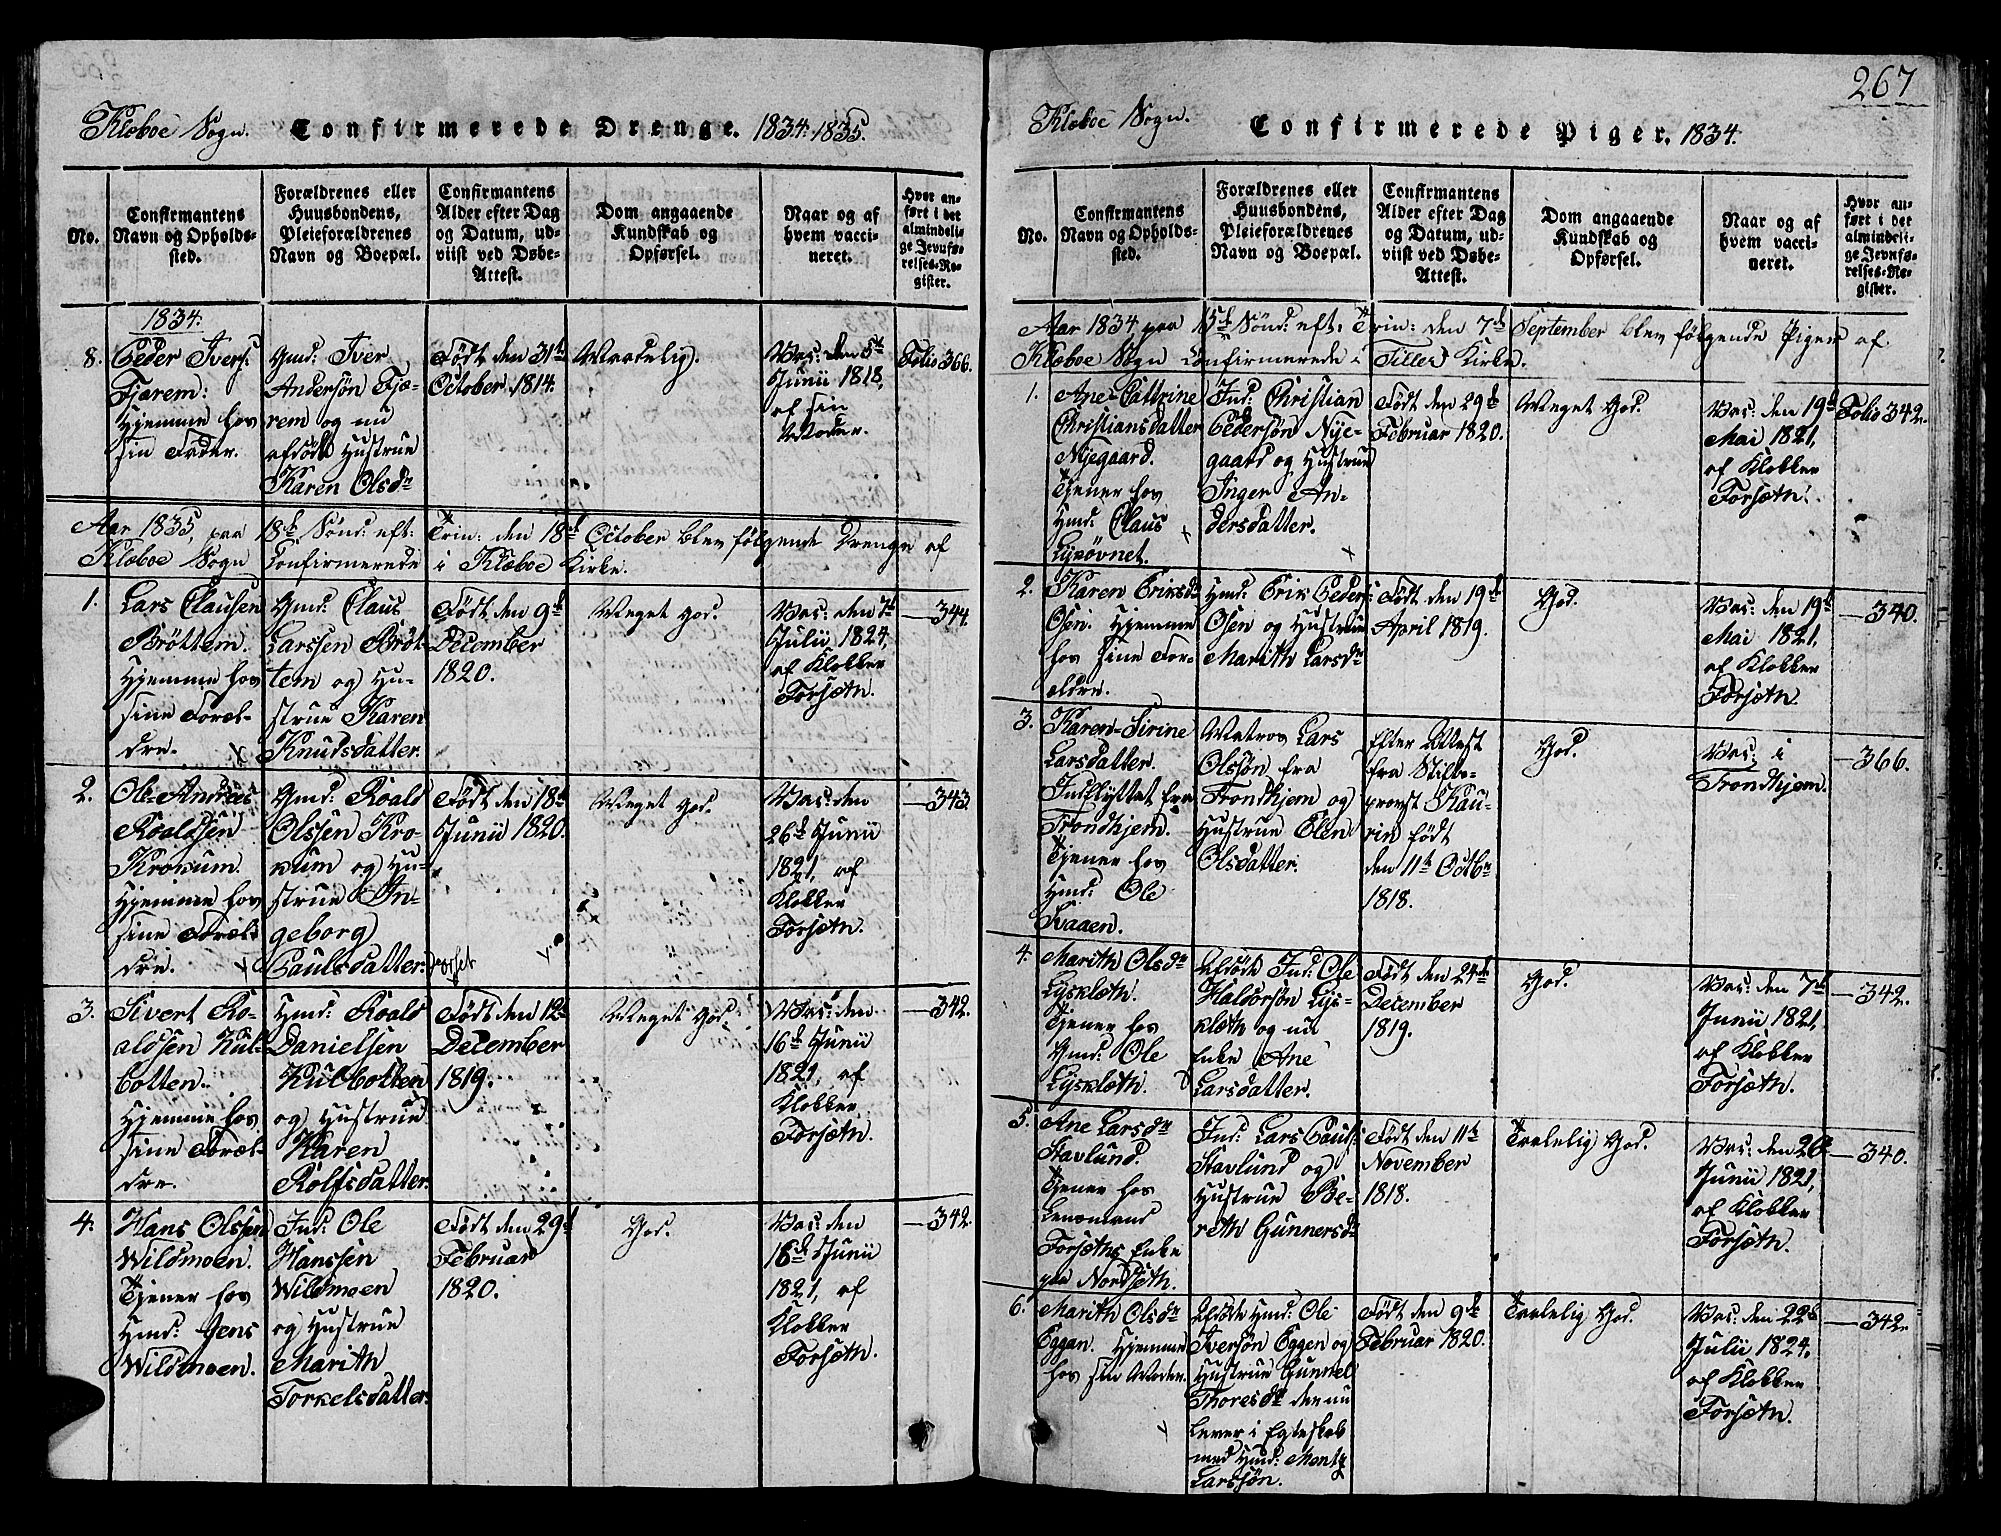 Klæboe Sogn. Confirmerede Drenge. 1834. 1835.
No.
Confirmantens
Navn og Opholds-
sted.
Forældrenes eller
Huusbondens,
Pleieforældrenes
Navn og Boepæl.
Confirmantens
Alder efter Dag
og Datum, ud-
viist ved Døbe-
Attest.
Dom angaaende
Kundskab og
Opførsel.
Naar og af
hvem vacci-
neret.
Hvor an-
ført i det
almindeli-
ge Jevnfø-
relses-Re-
gister.
1834.
8.
Peder Ivers:
Tjærem:
Hjemme hos
sin Fader.
Gmd: Iver
Andersøn Tjæ-
rem og nu
afdøde Hustrue
Karen Olsdr
Født den 31te
October 1814.
Maadelig.
Vac: den 5te
Junii 1818,
af sin
Moder.
Folio 366.
Aar 1835, paa 18de Sønd: eft: Trin: den 18de October blev følgende Drenge af
Klæboe Sogn Confirmerede i Klæboe Kirke.
1.
Lars Clausen
Brøttem.
Hjemme hos
sine Foræl-
dre.
Gmd: Claus
Larssen Brøt-
tem og Hu-
strue Karen
Knudsdatter.
Født den 9de
December
1820.
Meget God.
Vac: den 7de
Julii 1824,
af Klokker
Forsæth.
—344.
2.
Ole-Andreas
Roaldsen
Krokum.
Hjemme hos
sine Foræl-
dre.
Gmd: Roald
Olssen Kro-
kum og Hu-
strue In-
geborg
Paulsdatter. Forset
Født den 18de
Junii 1820.
Meget God.
Vac: den
26de Junii
1821, af
Klokker
Forsæth.
—343.
3.
Sivert Ro-
aldsen Hul-
botten.
Hjemme hos
sine Foræl-
dre.
Hmd: Roald
Danielsen
Hulbotten
og Hustrue
Karen
Rolfsdatter.
Født den 12te
December
1819.
Meget God.
Vac: den
16de Junii
1821, af
Klokker
Forsæth.
—342.
4.
Hans Olssen
Wildmoen.
Tjener hos
Hmd: Jens
Wildmoen.
Ind: Ole
Hanssen
Wildmoen
og Hustrue
Marith
Torkelsdatter.
Født den 29de
Februar
1820.
God.
Vac: den
16de Junii
1821, af
Klokker
Forsæth.
—342.
267
Klæboe Sogn. Confirmerede Piger. 1834.
No.
Confirmantens
Navn og Opholds-
sted.
Forældrenes eller
Huusbondens,
Pleieforældrenes
Navn og Boepæl.
Confirmantens
Alder efter Dag
og Datum, ud-
viist ved Døbe-
Attest.
Dom angaaende
Kundskab og
Opførsel.
Naar og af
hvem vacci-
neret.
Hvor an-
ført i det
almindeli-
ge Jevnfø-
relses-Re-
gister.
Aar 1834 paa 15de Sønd: eft: Trin: den 7de September blev følgende Piger af
Klæboe Sogn Confirmerede i Tiller Kirke.
1.
Ane-Cattrine
Christiansdatter
Nyegaard.
Tjener hos
Gmd: Claus
Lysøvnet.
Ind: Christian
Pedersøn Nye-
gaard og Hustrue
Inger An-
dersdatter.
Født den 29de
Februar 1820.
Meget God.
Vac: den 19de
Mai 1821,
af Klokker
Forsæth.
Folio 342.
2.
Karen Eriksdr
Osen. Hjemme
hos sine For-
ældre.
Hmd: Erik Peders:
Osen og Hustrue
Marith Larsdr
Født den 19de
April 1819.
God.
Vac: den 19de
Mai 1821,
af Klokker
Forsæth.
—340.
3.
Karen-Sirine
Larsdatter.
Indflyttet fra
Trondhjem.
Tjener hos
Hmd: Ole
Svaaen.
Matros Lars
Olssøn fra
Trondhjem og
Hustrue Elen
Olsdatter.
Efter Attest
fra Stifts-
provst Kau-
rin født
den 11te Octbr
1818.
God.
Vac: i
Trondhjem.
—366.
4.
Marith Olsdr
Lysklæth.
Tjener hos
Gmd: Ole
Lysklæth.
Afdøde Ind: Ole
Haldorsøn Lys-
klæth og nu
Enke Ane
Larsdatter.
Født den 24de
December
1819.
God.
Vac: den 7de
Junii 1821,
af Klokker
Forsæth.
—342.
5.
Ane Larsdr
Stavlund.
Tjener hos
Lensmand
Forsæths Enke
paa Nordsæth.
Ind: Lars Pauls:
Stavlund og
Hustrue Be-
reth Gunnersdr
Født den 11te
November
1818.
Taalelig God.
Vac: den 26de
Junii 1821,
af Klokker
Forsæth.
—340.
6.
Marith Olsdr
Eggan. Hjemme
hos sin Moder.
Afdøde Hmd: Ole
Iversøn Eggen og
Hustrue Gunnel
Thoresdr den nu
lever i Egteskab
med Hmd: Mentz
Larssøn.
Født den 9de
Februar 1820.
Taalelig God.
Vac: den 22de
Julii 1824.
af Klokker
Forsæth.
—342.